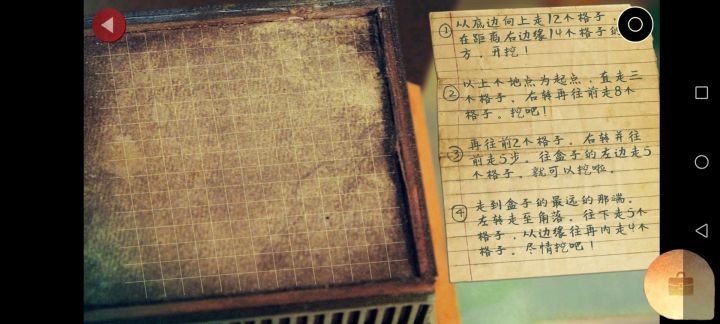 ① 从底边向上走12个格子,
在距离右边缘14个格子的
方,开挖!
② 以上个地点为起点,直走三
个格子,右转再往前走8个
格子。挖吧!
③ 再往前2个格子,右转并往
前走5步。往盒子的左边走5
个格子,就可以挖啦。
④ 走到盒子的最远的那端。
左转走至角落。往下走5个
格子,从边缘往再内走4个
格子。尽情挖吧!